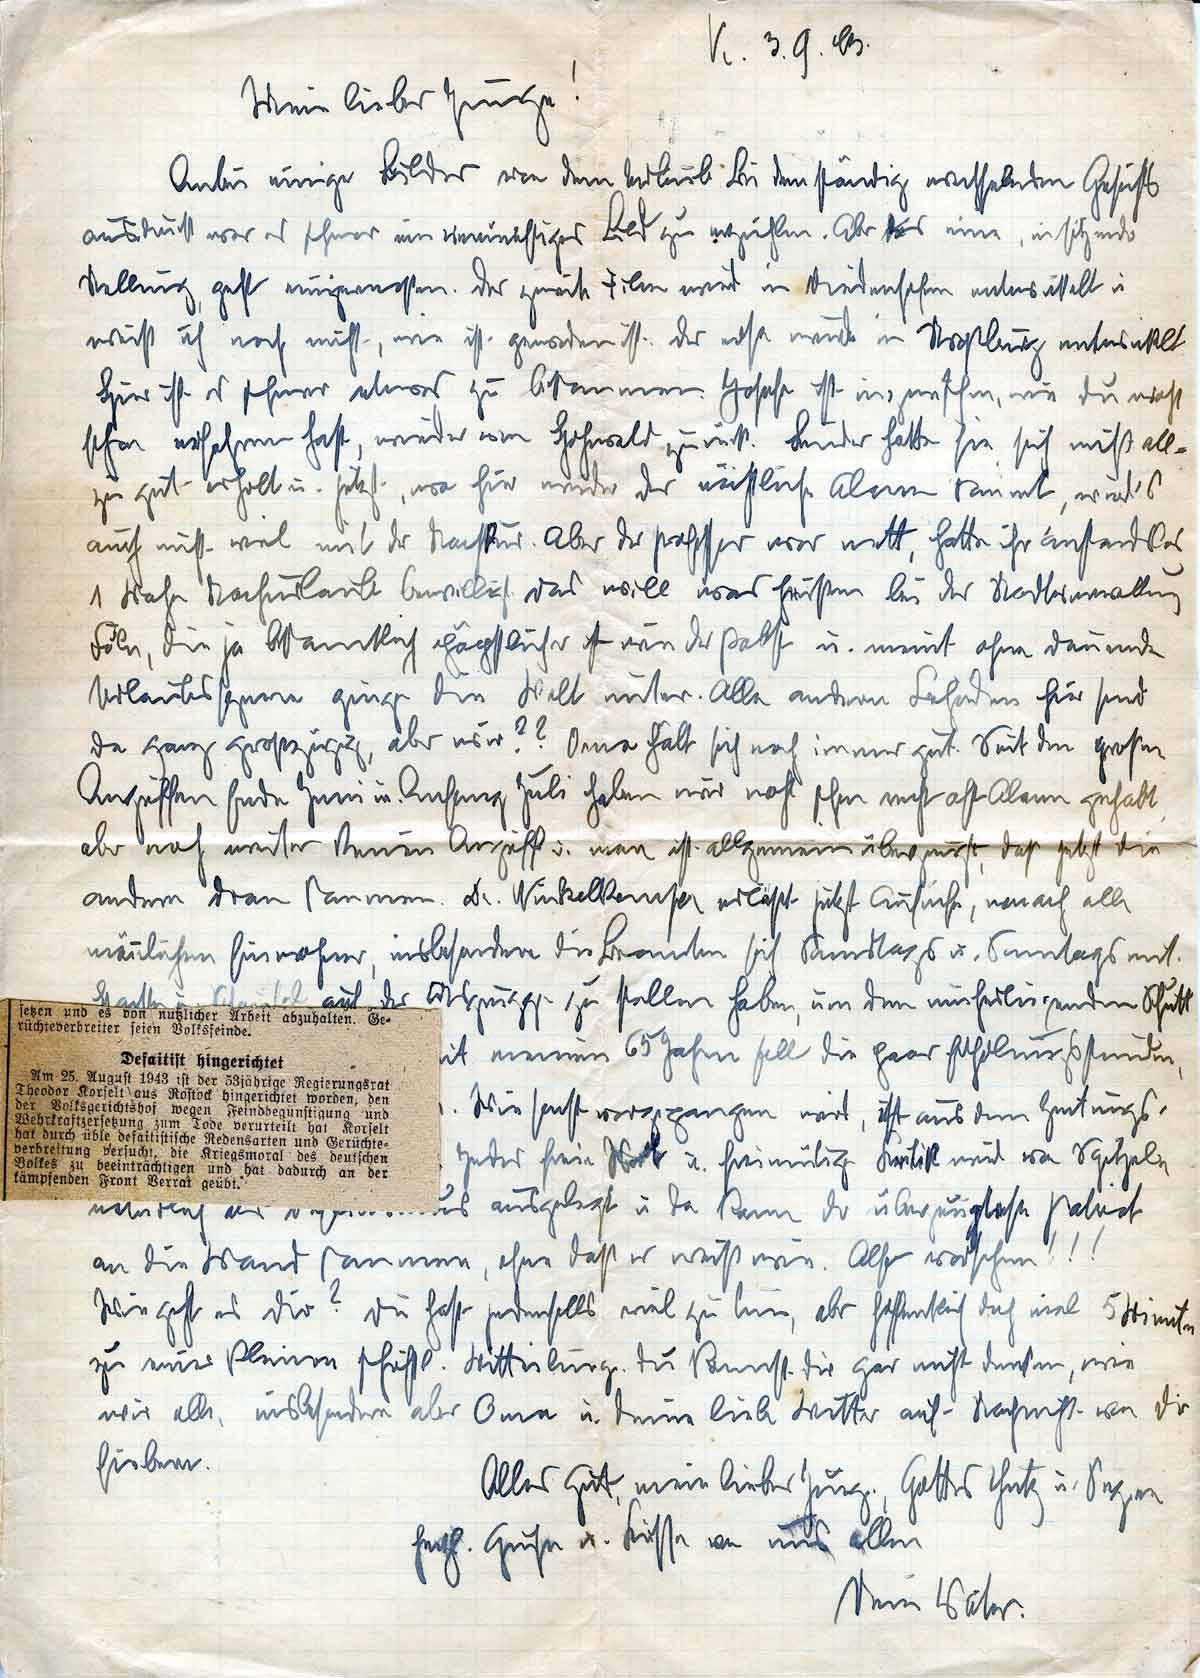 K. 3.9.43.
Mein lieber Junge!
Anbei einige Bilder von dem Urlaub. Bei dem ständig wechselnden Gesichts
ausdruck war es schwer ein vernünftiges Bild zu erzielen. Aber das eine, in sitzende
Stellung, geht einigermassen. Der zweite Film wird in entwickelt u
weiß ich noch nicht, wie ist geworden ist. Der erste wurde in entwickelt
Hier ist es schwer etwas zu bekommen. ist inzwischen, wie Du wohl
schon erfahren hast, wieder vom zurück. Leider hatte sie sich nicht all=
zu gut erholt u. jetzt, wo hier wieder der nächtliche Alarm kommt, wird's
auch nicht viel mit der Nachkur. Aber der Professor war nett, hatte ihr anstandslos
1 Woche Nachurlaub bewilligt. Das will was heißen bei der Stadtverwaltung
Köln, die ja bekanntlich päpstlicher ist wie der Papst u. meint ohne dauernde
Urlaubssperre ginge die Welt unter. Alle anderen Behörden hier sind
da ganz grosszügig, aber wir?? Oma hält sich noch immer gut. Seit den grossen
Angriffen Ende Juni u. Anfang Juli haben wir wohl schon recht oft Alarm gehabt,
aber noch weiter keinen Angriff u. man ist allgemein überzeugt, daß jetzt die
andern dran kommen. Dr. Winkelnkemper erläßt jetzt Aufrufe, wonach alle
männlichen Einwohner, insbesondere die Beamten sich Samstags u. Sonntags mit
Hacke u. Schaufel auf der zu stellen haben, um den umherliegenden Schutt
mit meinen 65 Jahren soll die paar Erholungsstunden,
Wie sonst vorgegangen wird, ist aus dem Zeitungs-
Jedes freie Wort u. freimütige Kritik wird von Spitzeln
natürlich als ausgelegt u da kann der überzeugteste Patriot
an die Wand kommen, ohne daß er weiß wie. Also vorsehen!!!
Wie geht es Dir? Du hast jedenfalls viel zu tun, aber hoffentlich doch mal 5 Minuten
zu einer kleinen schriftl. Mitteilung. Du kannst Dir gar nicht denken, wie
wir alle, insbesondere aber Oma u. Deine liebe Mutter auf Nachricht von Dir
fiebern.
Alles Gute, mein lieber Junge, Gottes Schutz u. Segen
herzl. Grüße u. Küsse von uns allen
Dein Vater.
setzen und es von nützlicher Arbeit abzuhalten. Ge-
rüchteverbreiter seien Volksfeinde.
Defaitist hingerichtet
Am 25. August 1943 ist der 53jährige Regierungsrat
Theodor Korselt aus Rostock hingerichtet worden, den
der Volksgerichtshof wegen Feindbegünstigung und
Wehrkraftzersetzung zum Tode verurteilt hat. Korselt
hat durch üble defaitistische Redensarten und Gerüchte-
verbreitung versucht, die Kriegsmoral des deutschen
Volkes zu beeinträchtigen und hat dadurch an der
kämpfenden Front Verrat geübt.